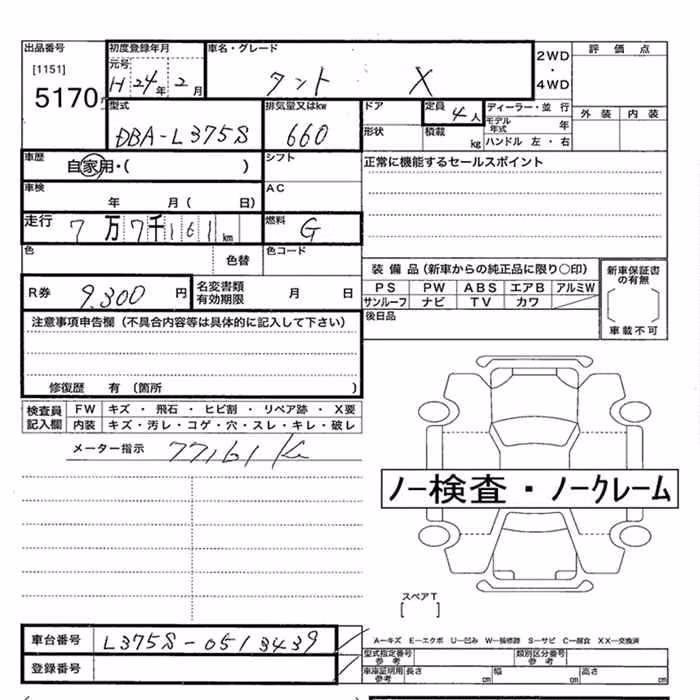 出品番号 初度登録年月 車名・グレード 2WD・4WD 評価点
[1151] 元号
5170 H 24年 2月 タント X
外装 内装
型式 排気量又はkw ドア 定員 4人 ディーラー・並行
DBA-L375S 660 モデル年式 年
形状 積載 kg ハンドル 左・右
車歴 自家用・( ) シフト 正常に機能するセールスポイント
車検 年 月( 日) AC
走行 7万7千161km 燃料 G
色 色替 色コード
装備品(新車からの純正品に限り○印) 新車保証書の有無
R券 9,300円 名変書類有効期限 月 日
PS PW ABS エアB アルミW
サンルーフ ナビ TV カワ
車載不可
後日品
注意事項申告欄(不具合内容等は具体的に記入して下さい)
修復歴 有(箇所 )
検査員記入欄 FW キズ・飛石・ヒビ割・リペア跡・X要
内装 キズ・汚レ・コゲ・穴・スレ・キレ・破レ
メーター指示 77161K
ノー検査・ノークレーム
スペアT
[ ]
車台番号 L375S-0513439
登録番号
A-キズ E-エクボ U-凹み W-補修跡 S-サビ C-腐食 XX-交換済
型式指定番号 参考 類別区分番号 参考
車庫証明用 参考 長さ cm 幅 cm 高さ cm